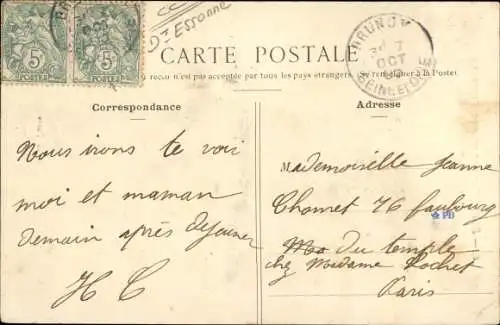 CC
Dt Essonne
5 5
POSTES POSTES
BRUNOY
OCT
SEINE-ET-OISE
CARTE POSTALE
recto n'est pas acceptée par tous les pays étrangers. (Se renseigner à la Poste)
Correspondance
Adresse
Nous irons te voir
moi et maman
demain après déjeuner
H C
Mademoiselle Jeanne
Chomet 76 faubourg
PB
du temple
chez Madame Rochet
Paris